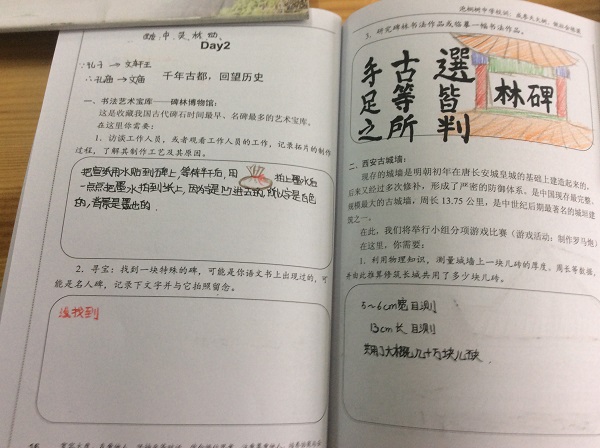 Day2
∵孔子→文宣王
∴孔庙→文庙
千年古都，回望历史
一、书法艺术宝库——碑林博物馆：
这是收藏我国古代碑石时间最早、名碑最多的艺术宝库。
在这里你需要：
1、访谈工作人员，或者观看工作人员的工作，记录拓片的制作
过程，了解其制作工艺及其原因。
把宣纸用水贴到石碑上，等候半干后，用
拍上墨水后
一点点把墨水拍到纸上，因为字是凹进去的，所以字是白色
的，背景是黑色的。
2、寻宝：找到一块特殊的碑，可能是你语文书上出现过的，可
能是名人碑，记录下文字并与它拍照留念。
没找到
3、研究碑林书法作品或临摹一幅书法作品。
選皆判
古等所
手足之
碑林
二、西安古城墙：
现存的城墙是明朝初年在唐长安城皇城的基础上建造起来的，
后来又经过多次修补，形成了严密的防御体系。是中国现存最完整、
规模最大的古城墙，周长 13.75 公里，是中世纪后期最著名的城垣建
筑之一。
在此，我们将举行小组分项游戏比赛（游戏活动：制作罗马炮）
在这里，你需要：
1、利用物理知识，测量城墙上一块儿砖的厚度、周长等数据，
并由此推算修筑长城共用了多少块儿砖。
5～6cm宽 目测
13cm长 目测
大概几十万块儿